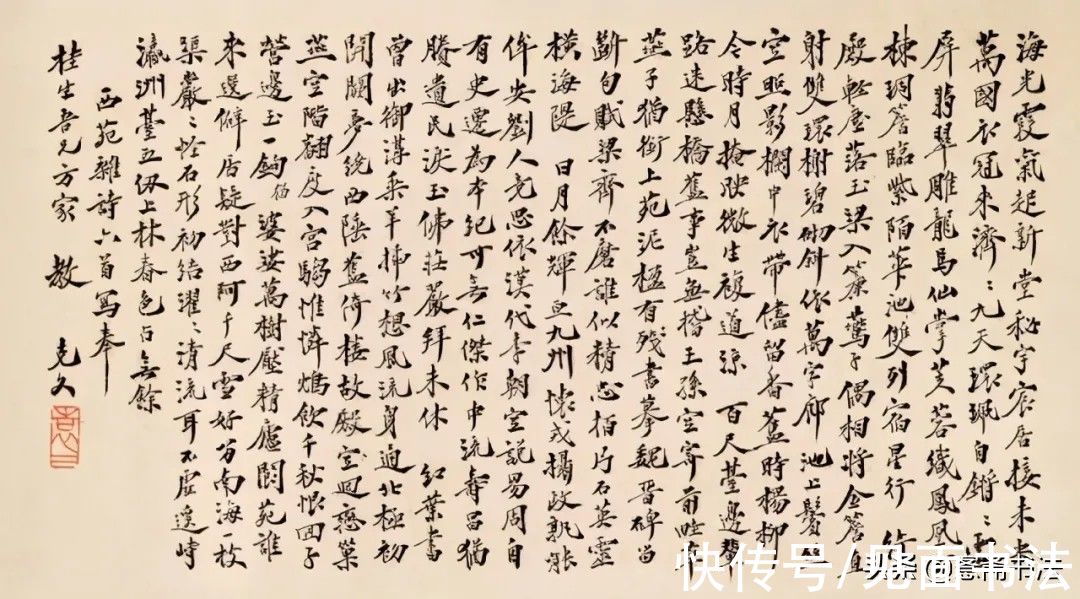 海光霞氣起新堂秘宇宸居接未央
萬國衣冠来濟〻九天環珮自鏘〻
屏翡翠雕龍馬仙掌芙蓉織鳳凰
棟琱簷臨紫陌華池雙列宿星行
殿輕塵落玉梁入簾鶯子偶相將金簷
射雙環樹碧砌斜依萬字廊 池上鬢
空照影欄中衣帶儘留香舊時楊柳
今時月掩映微生複道涼 百尺臺邊輦
路迷懸橋舊事豈無稽王孫空寄前
燕子猶銜上苑泥極有残書摹魏晋碑留
斷句賦梁齊不磨誰似精忠柏片石英靈
橫海隄 日月餘輝亘九州懷戎攝政親
侔安劉人竟思依漢代李朝空說易周自
有史遷為本紀可無仁傑作中流壽昌猶
賸遺民淚玉佛莊嚴拜未休 紅葉書
曾出御溝乘羊插竹想風流身過北極初
開闢夢繞西陲舊倚樓故殿空迴戀葉
燕空階翻度入宮騶惟憐鴆飲千秋恨回子
營邊玉一鉤 婆娑萬樹壓精廬閬苑誰
来選僻居疑對西阿千尺雪好分南海一枚
渠巖〻怪石形初結濯〻清流耳不虛溪峙
瀛洲臺五仭上林春色占無餘
西苑雜詩六首寫奉
桂生吾兄方家 教 克文
快传号/见面书法